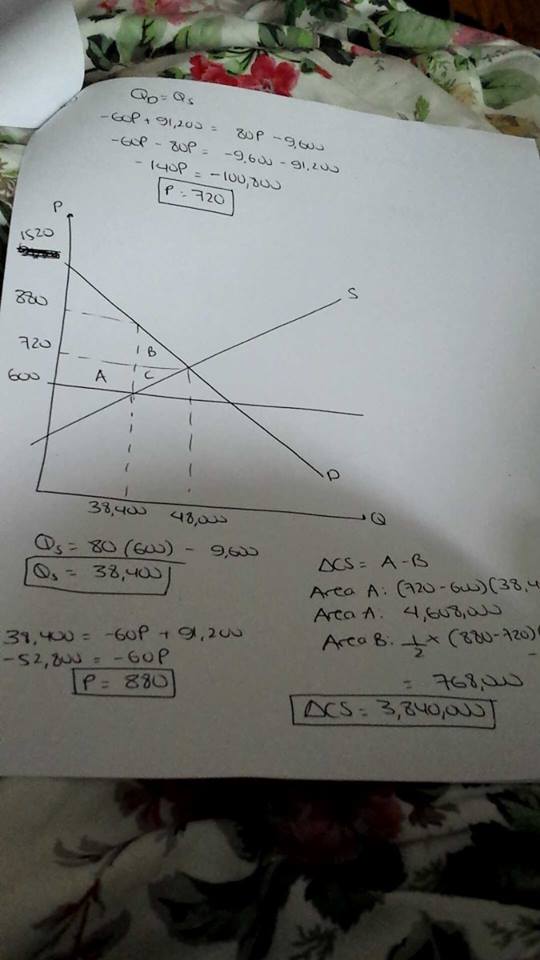 QD = Qs
-60P + 91,200 = 80P - 9,600
-60P - 80P = -9,600 - 91,200
-140P = -100,800
P = 720
P
1520
880
720
600
A
B
C
S
D
38,400
48,000
Q
Qs = 80(600) - 9,600
Qs = 38,400
38,400 = -60P + 91,200
-52,800 = -60P
P = 880
ΔCS = A - B
Area A: (720-600)(38,4
Area A: 4,608,000
Area B: 1/2 × (880-720)(
= 768,000
ΔCS = 3,840,000